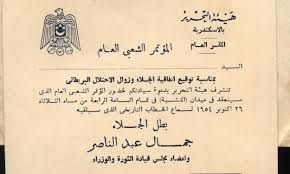 هيئة التحرير
بالاسكندرية
المقر العام
المؤتمر الشعبي العام
السيد
بمناسبة توقيع اتفاقية الجلاء وزوال الاحتلال البريطاني
تتشرف هيئة التحرير بدعوة سيادتكم لحضور المؤتمر الشعبي العام الذي
سينعقد في ميدان (المنشية) في تمام الساعة الرابعة من مساء الثلاثاء
٢٦ اكتوبر ١٩٥٤ لسماع الخطاب التاريخي الذي سيلقيه
بطل الجلاء
جمال عبد الناصر
واعضاء مجلس قيادة الثورة والوزراء